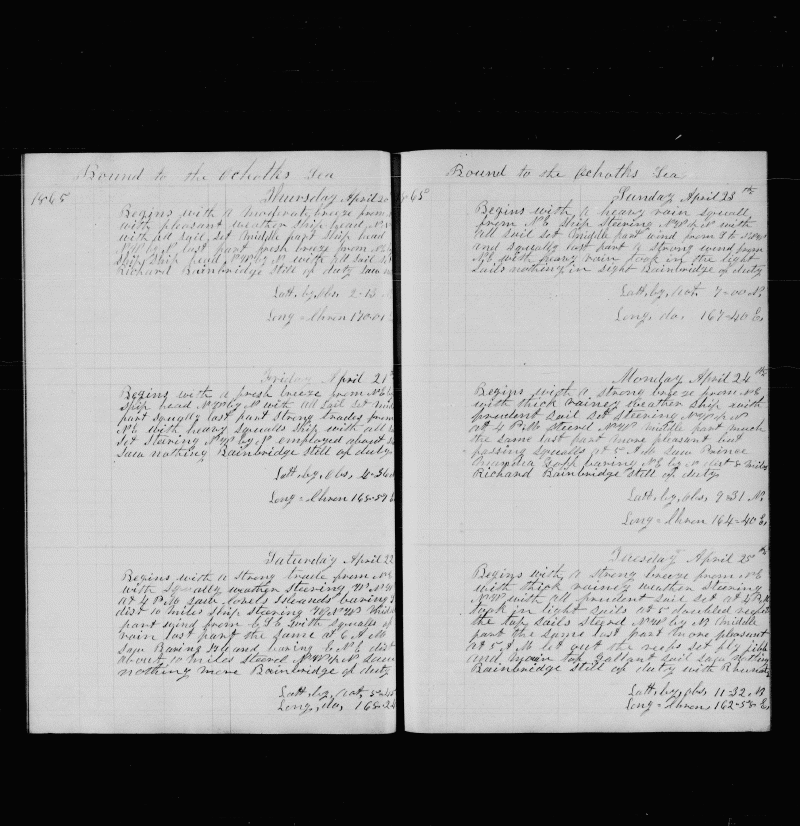 Bound to the Ochotks Sea
1865
Thursday April 20
Begins with a moderate breeze from
with pleasant weather ship head
with all sail set Middle part ship head
NW by N last part fresh breeze from NE
ship head NW by N with all sail
Richard Bainbridge still of duty saw
Latt, by, Obs, 2-13
Long = Chron 170-01
Friday April 21
Begins with a fresh breeze from NE
Ship head NW by N with all sail set Middle
part squally last part strong trades from
NE with heavy squalls ship with all
set steering NW by N employed about
saw nothing Bainbridge still of duty
Latt, by, Obs, 4-36
Long = Chron 168-59 E
Saturday April 22
Begins with a strong trade from NE
with squally weather steering
at 4 P.M. saw Islands baring
dist 10 miles ship steering Middle
part wind from E.S.E. with squalls of
rain last part the same at 6 A.M
saw Baring Island baring E.N.E dist
about 10 miles steered NW by N saw
nothing more Bainbridge of duty
Latt, by, Acct, 5-45
Long, do, 168-24
Bound to the Ochotks Sea
1865
Sunday April 23th
Begins with a heavy rain squall
from N.E Ship Steering NW by N with
all sail set Middle part wind from
and squally last part a strong wind from
NE with heavy rain took in the light
sails nothing in sight Bainbridge of duty
Latt, by, Acct, 7-00 N,
Long, do, 167-40 E,
Monday April 24th
Begins with a strong breeze from NE
with thick rainey weather ship with
prudent sail set steering NW by N
at 4 P.M steered NW Middle part much
the same last part more pleasant but
passing squalls at 5 A.M saw
baring N.E by N dist 8 miles
Richard Bainbridge still of duty
Latt, by, Obs, 9-31 N,
Long = Chron 164-40 E,
Tuesday April 25th
Begins with a strong breeze from NE
with thick rainey weather steering
NW with all prudent sail set at 4 P.M
took in light sails at 5 doubled reefed
the top sails steered NW by N Middle
part the same last part more pleasant
at 5 A.M let out the reefs set fly jibb
and top Gallant sail saw nothing
Bainbridge still of duty with
Latt, by, Obs, 11-32 N
Long = Chron, 162-58 E,